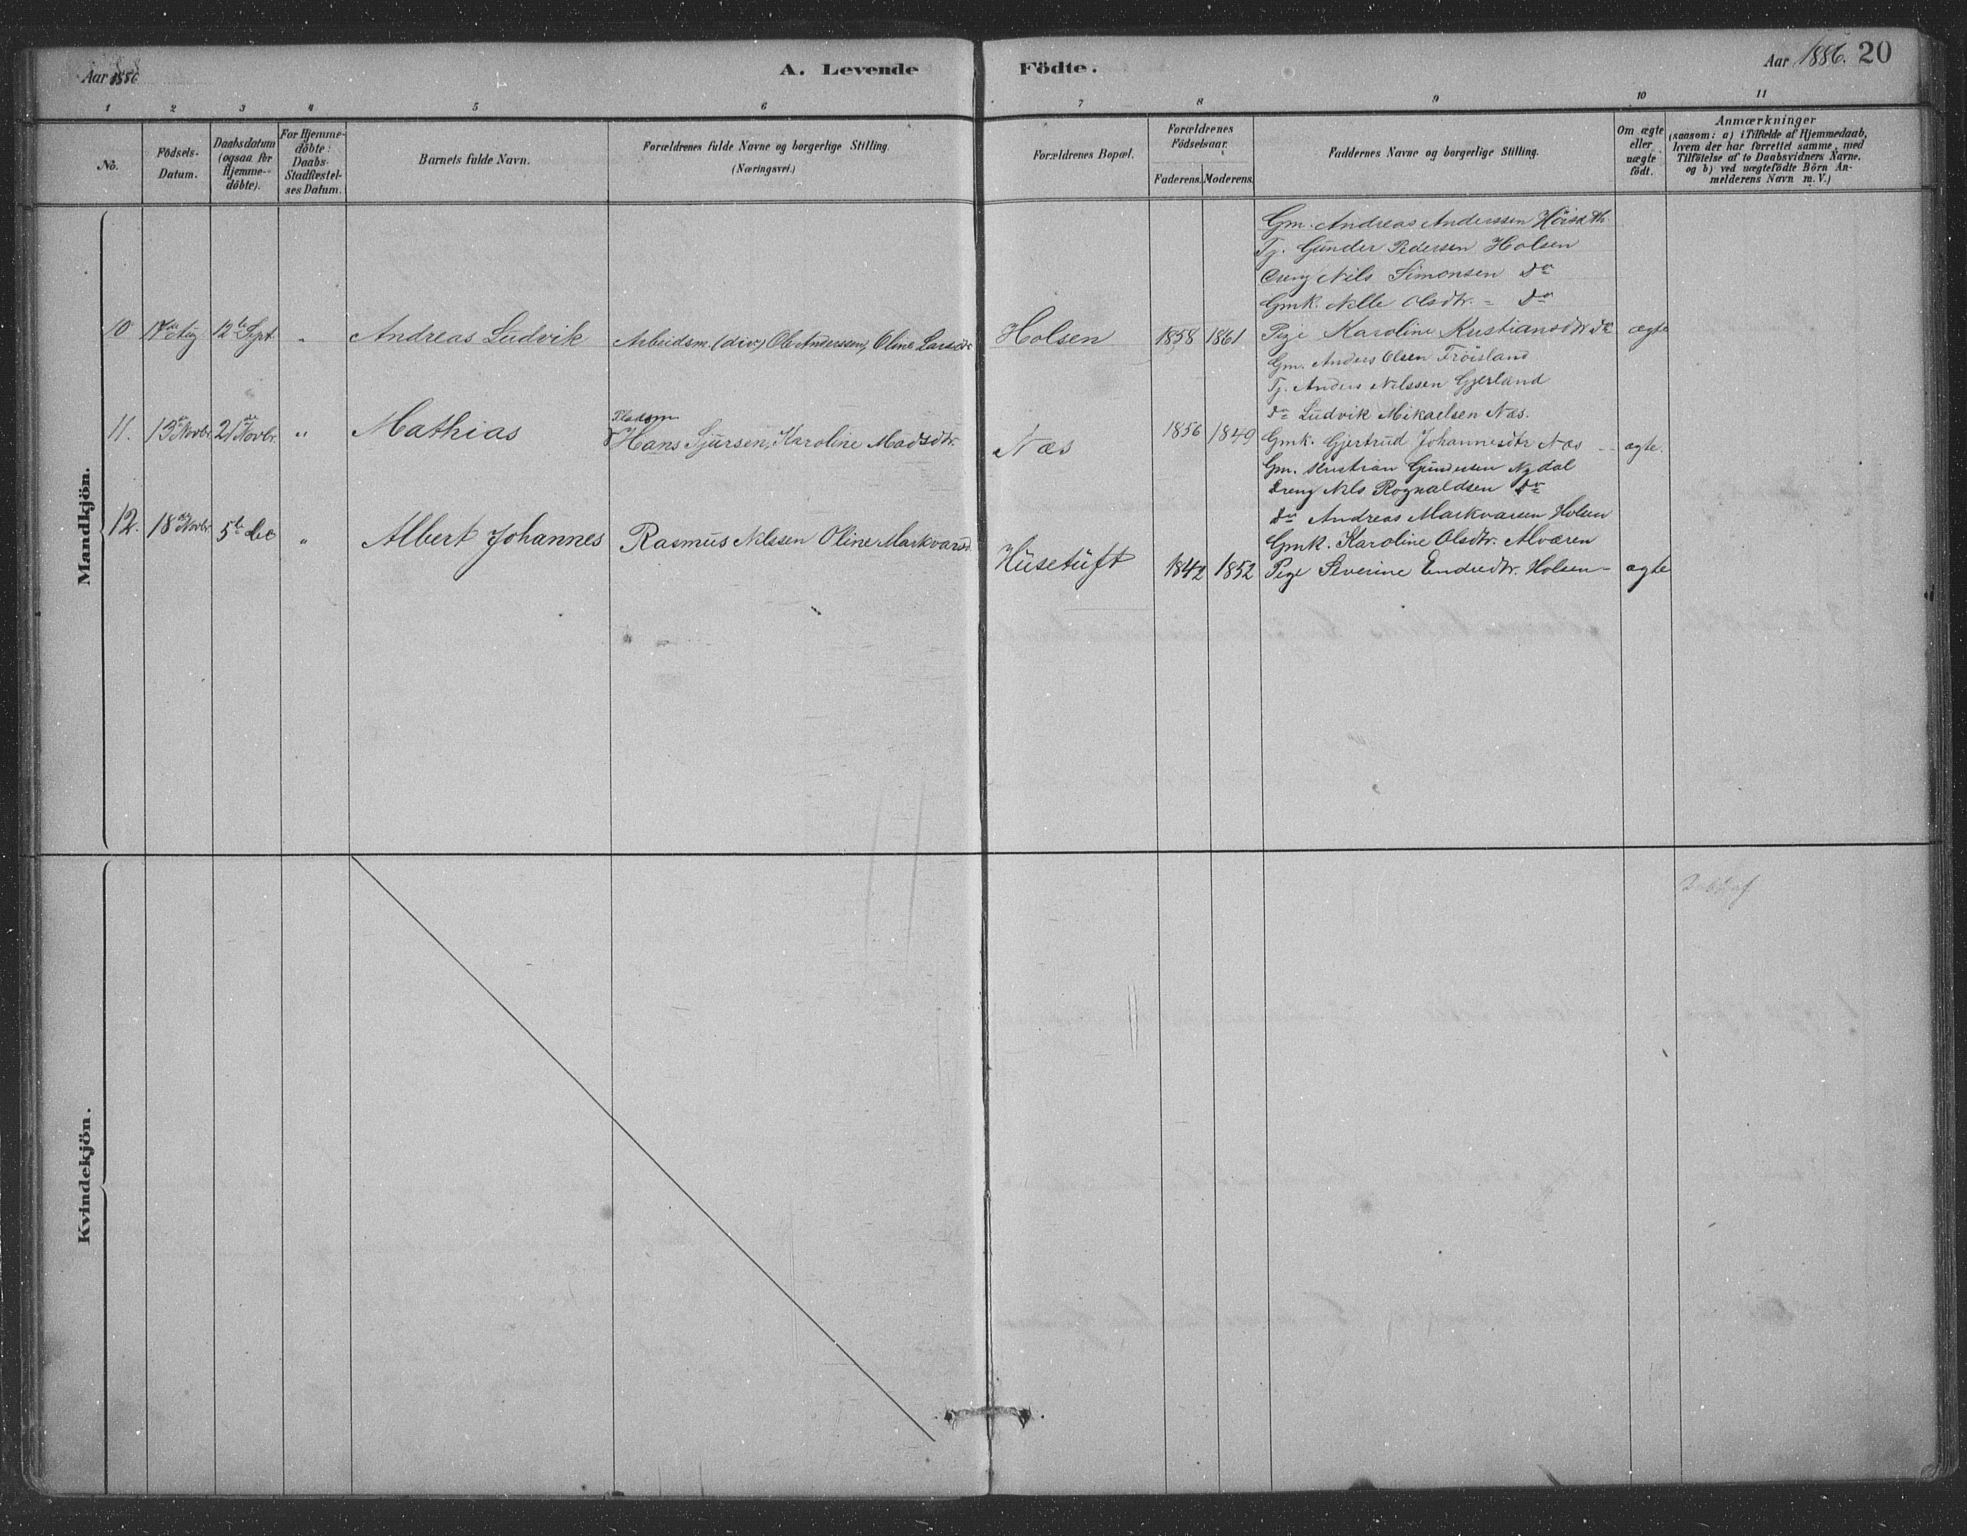 Aar 1886
A. Levende Födte.
Aar 1886. 20
1 2 3 4 5 6 7 8 9 10 11
No.
Födsels-Datum.
Daabsdatum (ogsaa for Hjemmedöbte).
For Hjemmedöbte: Daabs-Stadfæstelses Datum.
Barnets fulde Navn.
Forældrenes fulde Navne og borgerlige Stilling.
(Næringsvei.)
Forældrenes Bopæl.
Forældrenes Födselsaar.
Faderens. Moderens.
Faddernes Navne og borgerlige Stilling.
Om ægte eller uægte födt.
Anmærkninger
(saasom: a) i Tilfælde af Hjemmedaab,
hvem der har forrettet samme, med
Tilföielse af to Daabsvidners Navne,
og b) ved uægtefödte Börn Anmelderens Navn m. V.)
Mandkjön.
Gm. Andreas Anderssen
Tj. Gunder Pedersen Holsen
Dreng Nils Simonsen do
Gmk. Nille Olsdtr. - do
10 Aug 12te Sept. " Andreas Ludvik Arbeidsm. (div) Ole Anderssen, Oline Larsdtr Holsen 1858 1861 Pige Karoline Kristiansdtr do ægte
Gm. Anders Olsen Fröisland
Tj. Anders Nilssen Gjerland
do Ludvik Mikaelsen Næs.
11. 13de Novbr. 21de Novbr. " Mathias Pladsm Hans Sjursen, Karoline Madsdtr. Næs 1856 1849 Gmk. Gjertrud Johannesdtr Næs - ægte.
Gm. Kristian Gundersen Nydal
Dreng Nils Rognaldsen do
do Andreas Markvarsen Holsen
Gmk. Karoline Olsdtr. Alværen
12. 18de Novbr. 5te Dec " Albert Johannes Rasmus Nilssen Oline Markvarsd. Husetuft 1842 1852 Pige Severine Endredtr. Holsen - ægte
Kvindekjön.